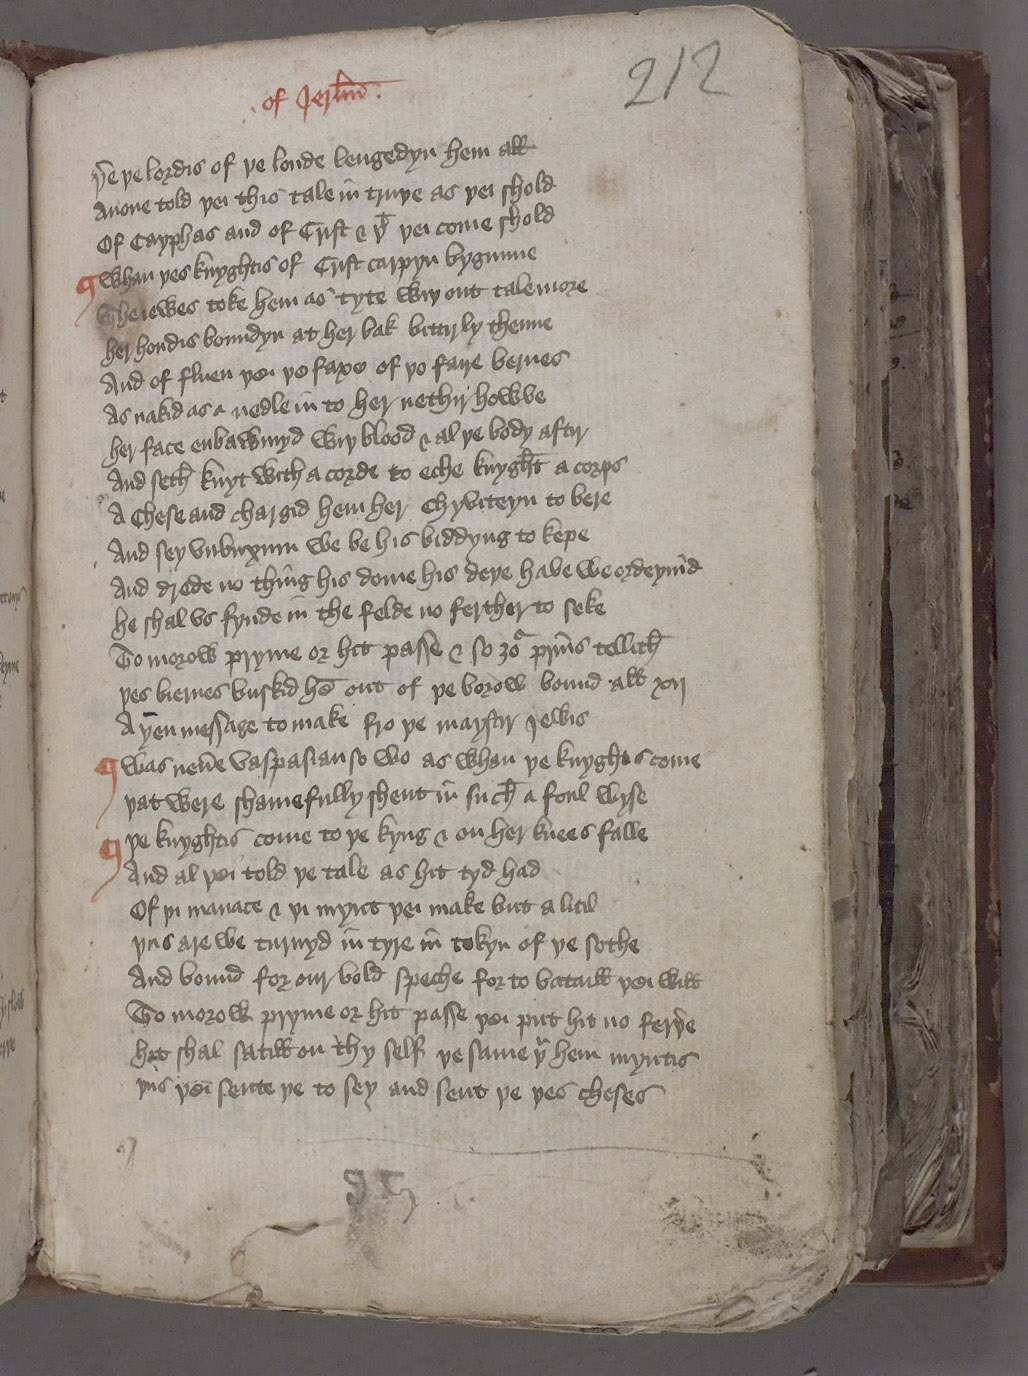 of Jerlm̄
212
þ̄e þe lordis of þe londe lengedyn hem all
Anone told þei this tale in truþe as þei shold
Of Cayphas and of Crist & þᵗ þei come shold
¶ whan þes knyghtis of Crist carpyn bygunne
The iewes toke hem as tyte wiþ out tale more
her hondis boundyn at her bak bittirly thenne
And of fluen þei þo faxe of þo faire bernes
As nakid as a nedle in to her nethir howve
her face enbawmyd wiþ blood & al þe body aftir
And seth knyt with a corde to eche knyght a corps
A Chese and chargid hem her chyveteyn to bere
And sey vnbuxum we be his biddyng to kepe
And drede no thing his dome his deþe have we ordeyind
he shal vs fynde in the felde no ferther to seke
To morow pryme or hit passe & so ȝoᵃ prins tellith
þes biernes buskid hē out of þe borow bound all xij
A ȝen message to make fro þe mayster iewis
¶ was neu̅e vaspasian so wo as whan þe knyghtis come
þat were shamefully shent in such a foul wyse
¶ þe knyghtis come to þe kyng & on her knees falle
And al þei told þe tale as hit tyd had
Of þi manace & þi mynt þei make but a litil
þus are we turnyd in tyre in tokyn of þe sothe
And bound for our bold speche for to bataill þei will
To morow pryme or hit passe þei put hit no ferþ̄e
hit shal satill on thy self þe same þᵗ hem myntis
þus þei sente þe to sey and sent þe þes cheses